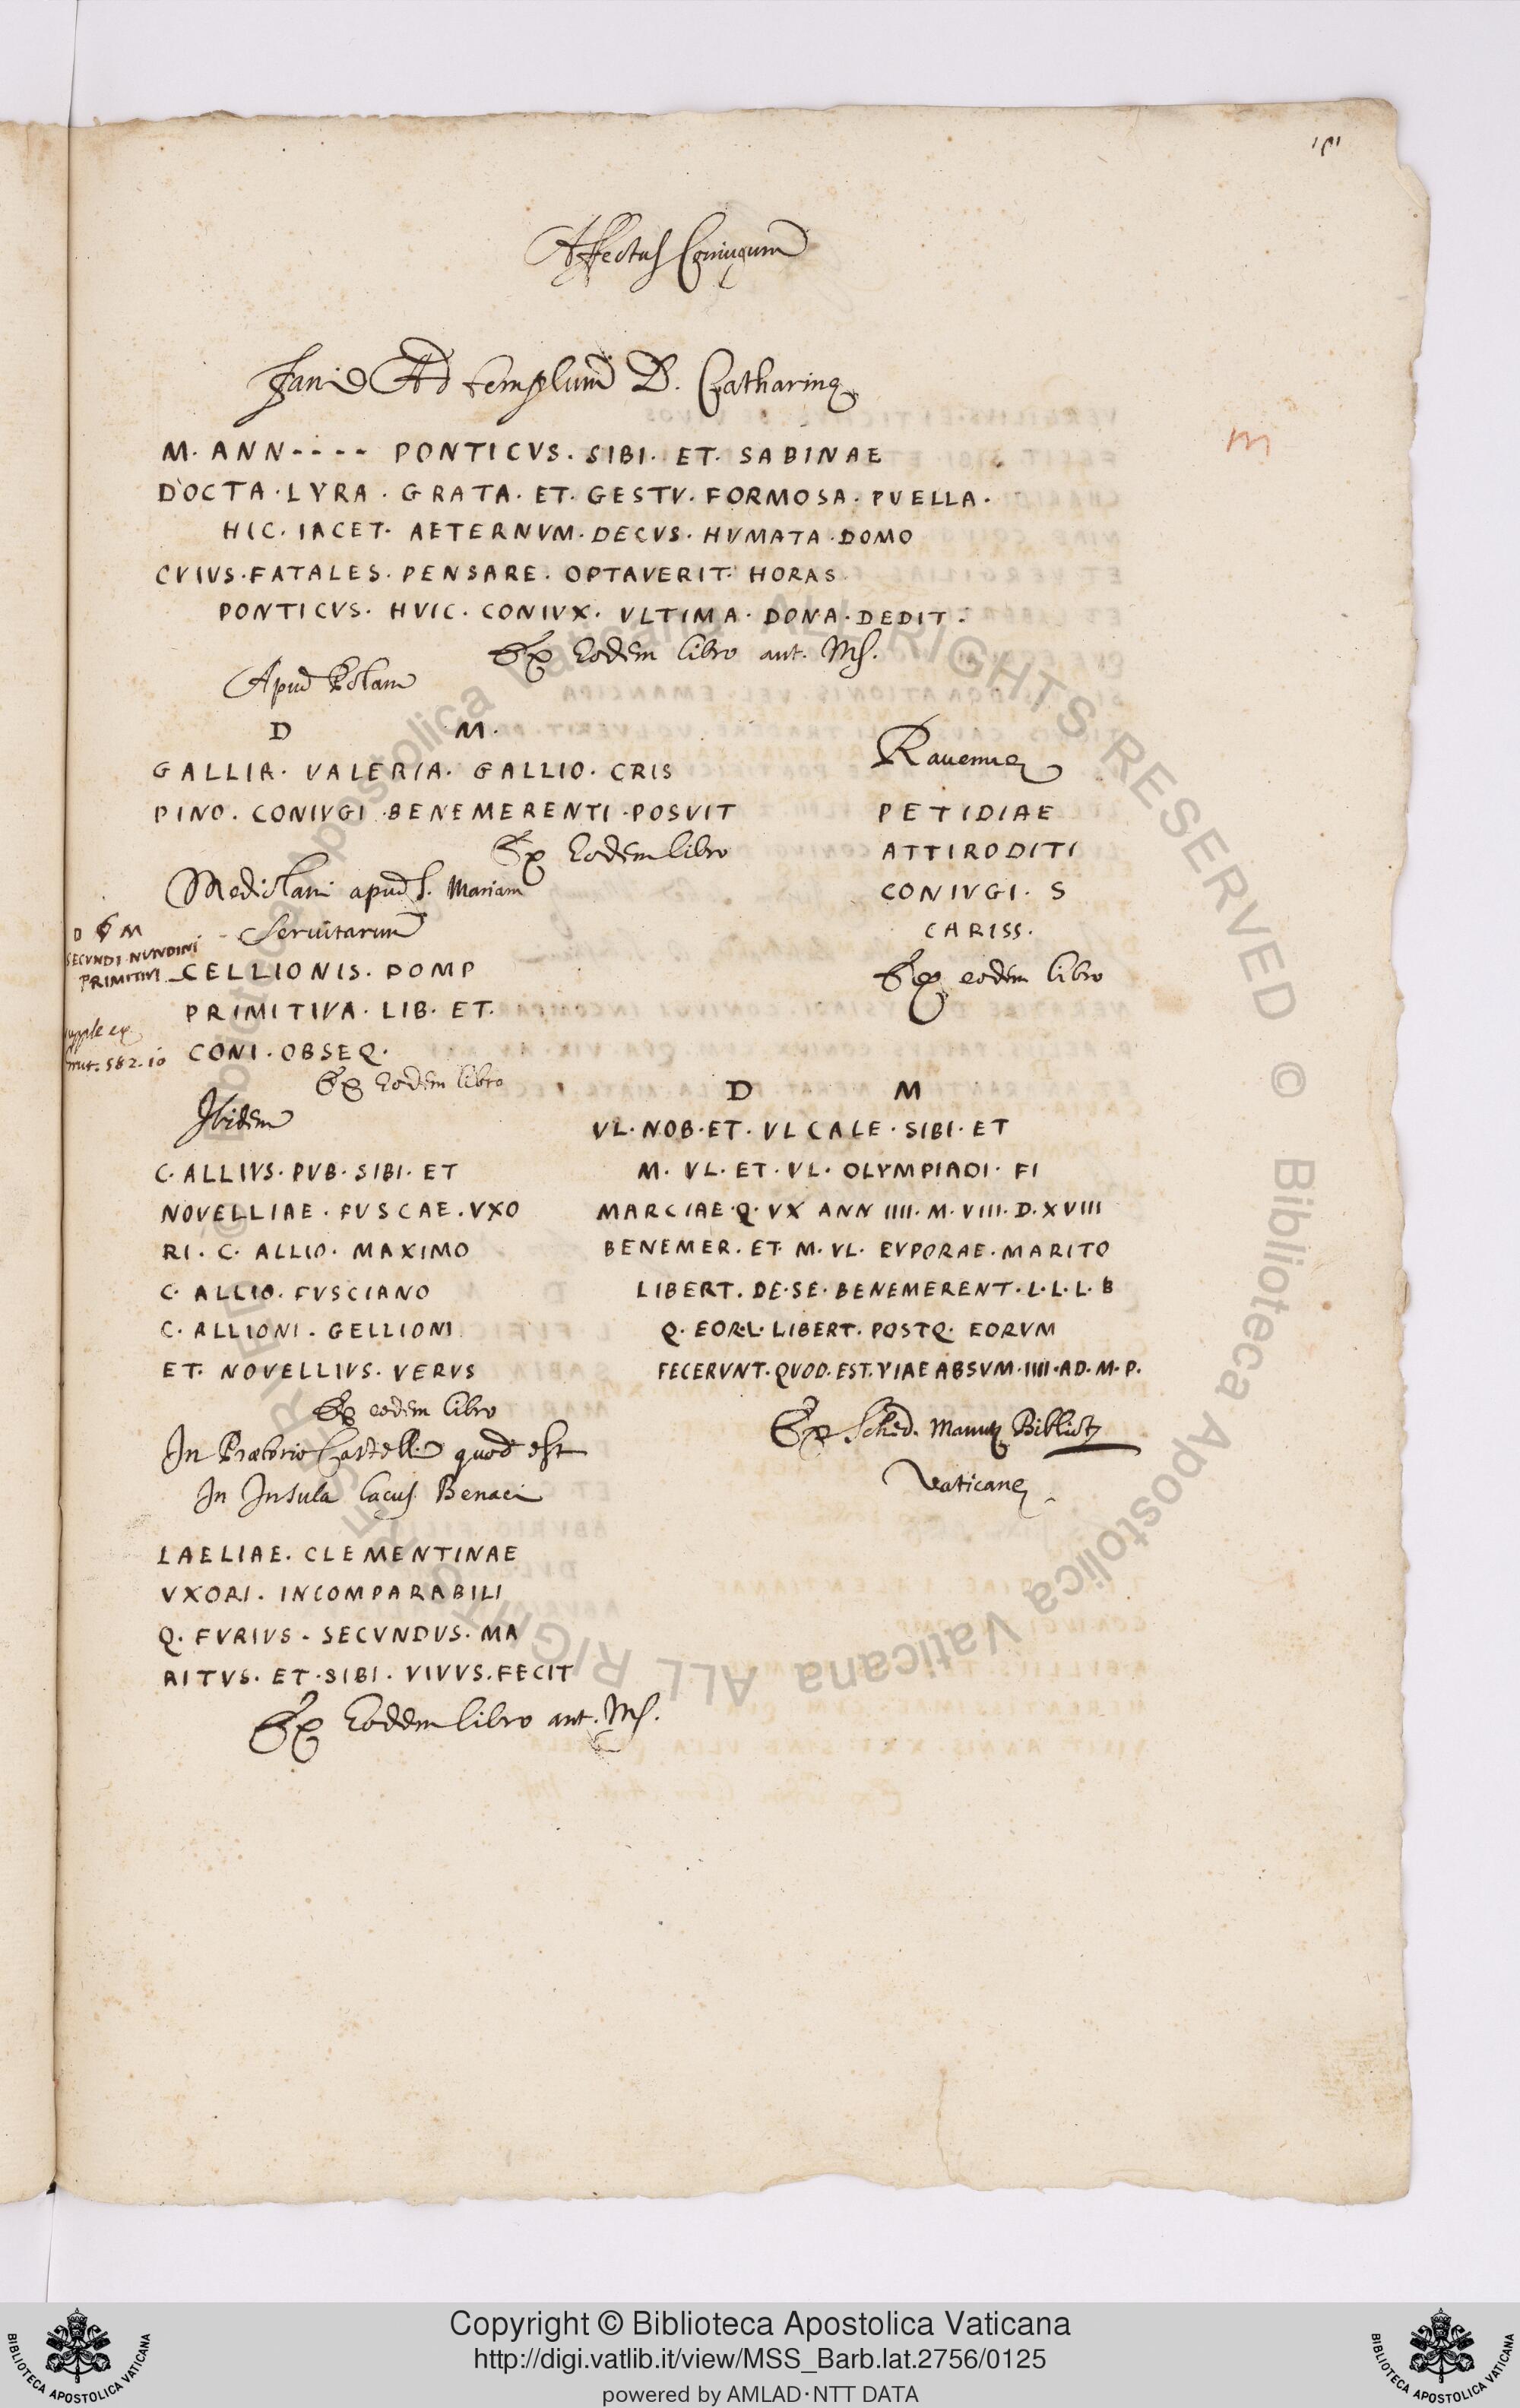 191
Affectus Coniugum
Fani Ad templum D. Catharinę
M. ANN---- PONTICVS. SIBI. ET. SABINAE
DOCTA. LYRA. GRATA. ET. GESTV. FORMOSA. PVELLA.
HIC. IACET. AETERNVM. DECVS. HVMATA. DOMO
CVIVS. FATALES. PENSARE. OPTAVERIT. HORAS
PONTICVS. HVIC. CONIVX. VLTIMA. DONA. DEDIT.
Ex Eodem libro ant. Ms.
M
Apud Polam
D M.
GALLIA. VALERIA. GALLIO. CRIS
PINO. CONIVGI. BENEMERENTI. POSVIT
Ex Eodem libro
Rauennę
PETIDIAE
ATTIRODITI
CONIVGI. S
CARISS.
Ex eodem libro
Mediolani apud S. Mariam
Seruitarum
D M
SECVNDI NVNDINI
PRIMITIVI
CELLIONIS. POMP
PRIMITIVA. LIB. ET.
CONI. OBSEQ.
supple ex
Grut. 582. 10
Ex Eodem libro
Ibidem
C. ALLIVS. PVB. SIBI. ET
NOVELLIAE. FVSCAE. VXO
RI. C. ALLIO. MAXIMO
C. ALLIO. FVSCIANO
C. ALLIONI. GELLIONI
ET. NOVELLIVS. VERVS
Ex eodem libro
D M
VL. NOB. ET. VLCALE. SIBI. ET
M. VL. ET. VL. OLYMPIADI. FI
MARCIAE. Q. VX ANN IIII. M. VIII. D. XVIII
BENEMER. ET. M. VL. EVPORAE. MARITO
LIBERT. DE. SE. BENEMERENT. L. L. L. B
Q. EOR. L. LIBERT. POSTQ. EORVM
FECERVNT. QUOD. EST. VIAE ABSVM. IIII. AD. M. P.
Ex Sched. Manutij Bibliot
Vaticanę
In Prætorio Castelli quod est
In Insula lacus Benaci
LAELIAE. CLEMENTINAE
VXORI. INCOMPARABILI
Q. FVRIVS. SECVNDVS. MA
RITVS. ET. SIBI. VIVVS. FECIT
Ex Eodem libro ant. Ms.
© Biblioteca Apostolica Vaticana ALL RIGHTS RESERVED © Biblioteca Apostolica Vaticana ALL RIGHTS RESERVED
Copyright © Biblioteca Apostolica Vaticana
http://digi.vatlib.it/view/MSS_Barb.lat.2756/0125
powered by AMLAD·NTT DATA
BIBLIOTECA APOSTOLICA VATICANA
BIBLIOTECA APOSTOLICA VATICANA